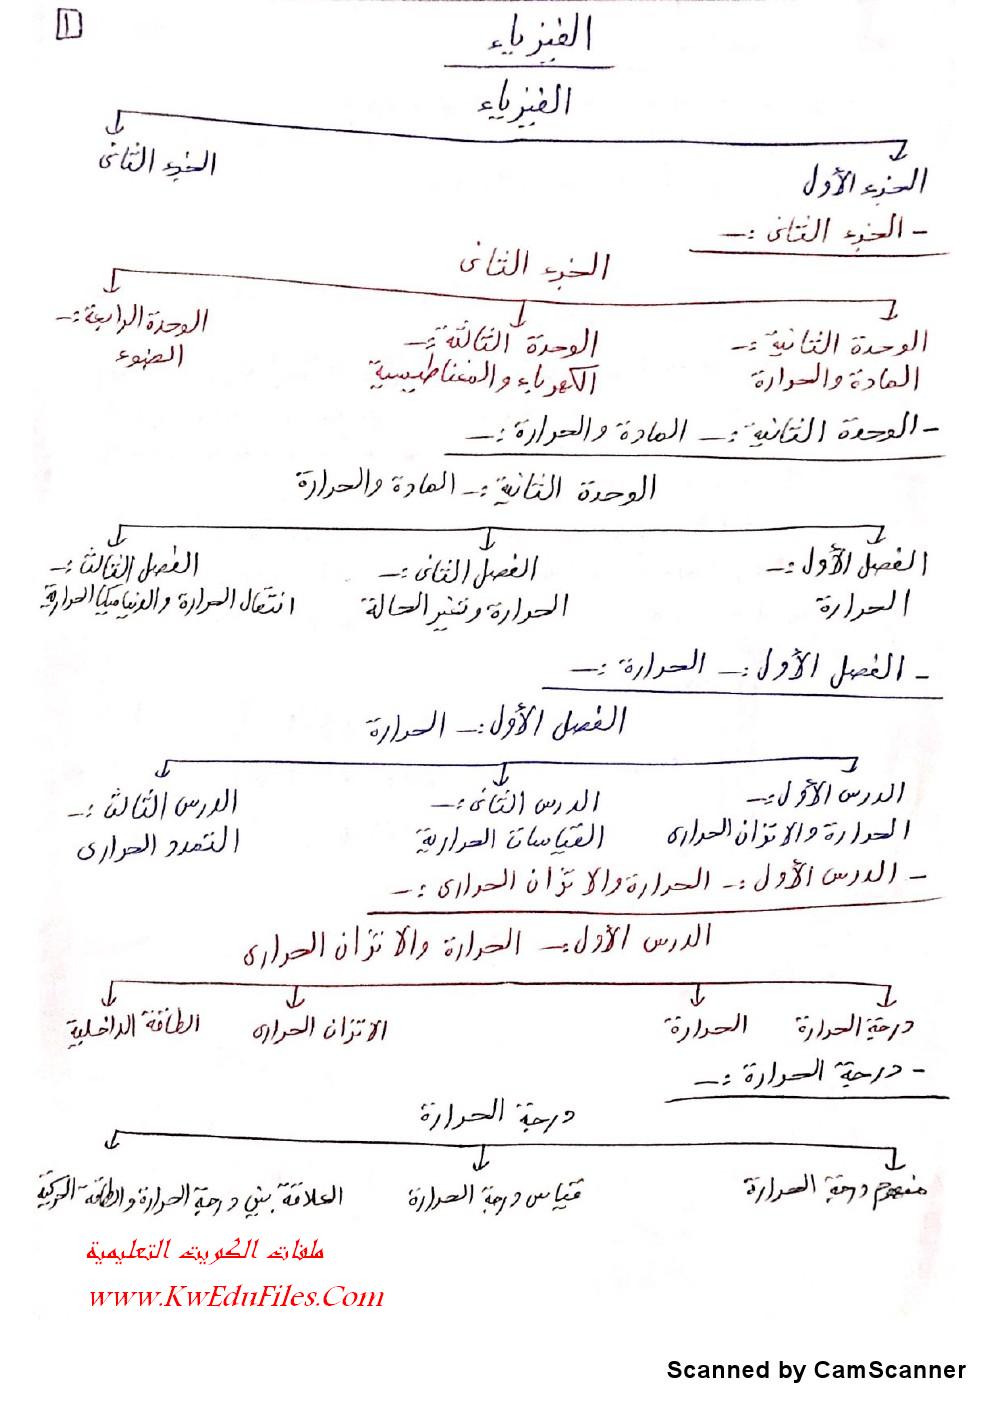 ١
الفيزياء
الفيزياء
الجزء الأول
الجزء الثانى
- الجزء الثانى :-
الجزء الثانى
الوحدة الثانية :-
الوحدة الثالثة :-
الوحدة الرابعة :-
المادة والحرارة
الكهرباء والمغناطيسية
الضوء
- الوحدة الثانية :- المادة والحرارة :-
الوحدة الثانية :- المادة والحرارة
الفصل الأول :-
الفصل الثانى :-
الفصل الثالث :-
الحرارة
الحرارة وتغير الحالة
انتقال الحرارة والديناميكا الحرارية
- الفصل الأول :- الحرارة :-
الفصل الأول :- الحرارة
الدرس الأول :-
الدرس الثانى :-
الدرس الثالث :-
الحرارة والاتزان الحرارى
القياسات الحرارية
التمدد الحرارى
- الدرس الأول :- الحرارة والاتزان الحرارى :-
الدرس الأول :- الحرارة والاتزان الحرارى
درجة الحرارة
الحرارة
الاتزان الحرارى
الطاقة الداخلية
- درجة الحرارة :-
درجة الحرارة
مفهوم درجة الحرارة
قياس درجة الحرارة
العلاقة بين درجة الحرارة والطاقة الحركية
ملفات الكويت التعليمية
www.KwEduFiles.Com
Scanned by CamScanner